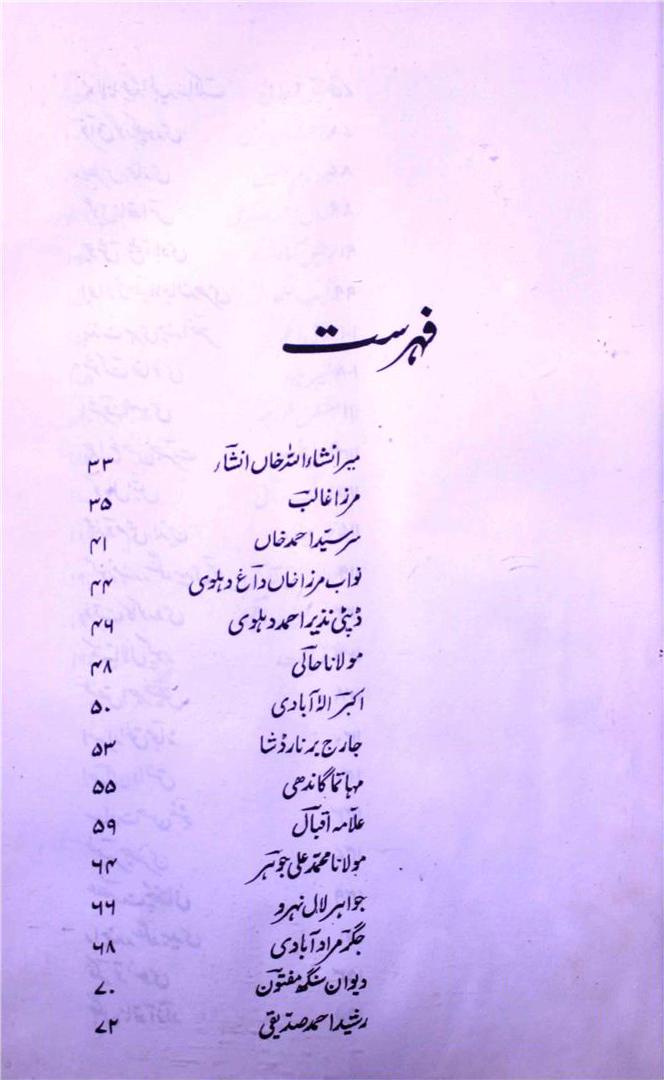 فہرست
میر انشاء اللہ خاں انشاؔء ۳۳
مرزا غالبؔ ۳۵
سر سیّد احمد خاں ۴۱
نواب مرزا خاں داؔغ دہلوی ۴۴
ڈپٹی نذیر احمد دہلوی ۴۶
مولانا حالیؔ ۴۸
اکبرؔ الٰہ آبادی ۵۰
جارج برنارڈ شا ۵۳
مہاتما گاندھی ۵۵
علّامہ اقبالؔ ۵۹
مولانا محمّد علی جوہرؔ ۶۴
جواہر لال نہرو ۶۶
جگرؔ مراد آبادی ۶۸
دیوان سنگھ مفتونؔ ۷۰
رشید احمد صدّیقی ۷۲